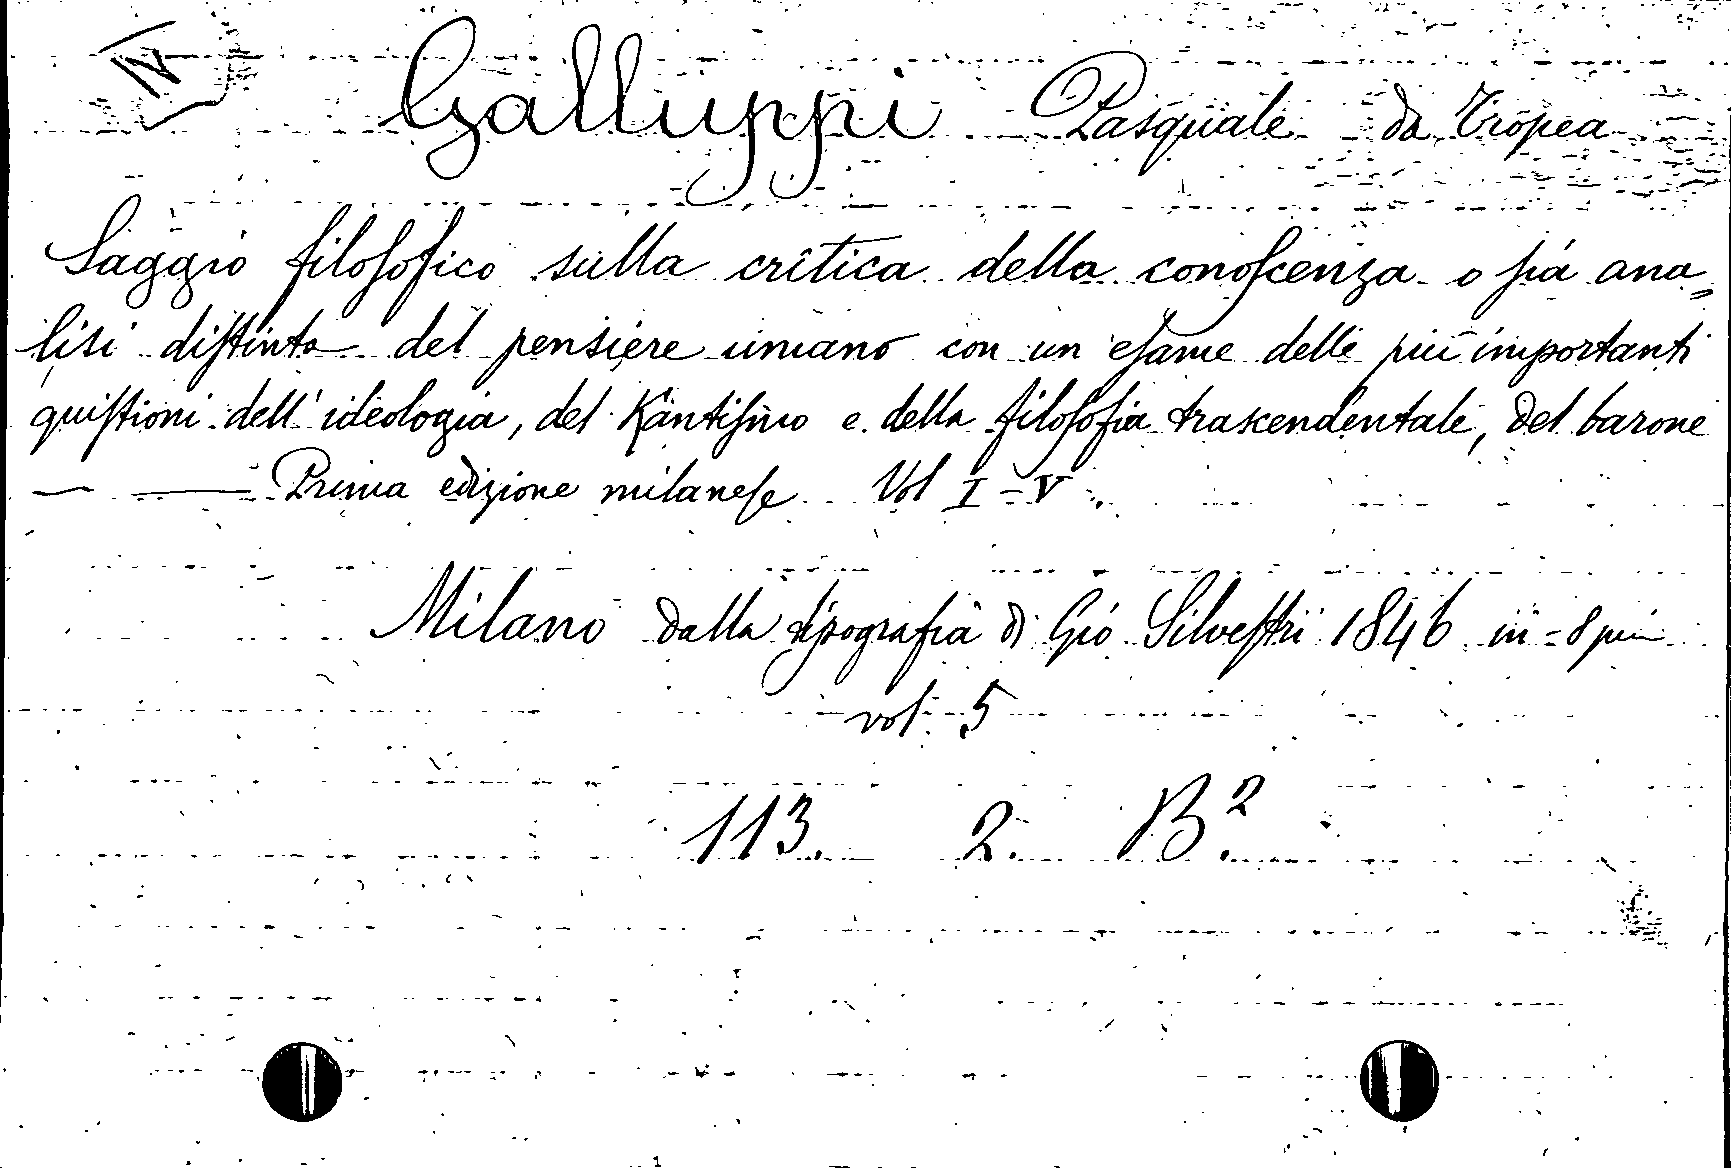 Galluppi Pasquale da Tropea
Saggio filosofico sulla critica della conoscenza o sia ana=
lisi distinta del pensiere umano con un esame delle più importanti
quistioni dell'ideologia, del Kantismo e della filosofia trascendentale, del barone
— —— Prima edizione milanese Vol I-V.
Milano dalla tipografia di Gio Silvestri 1846 in-8 pic
vol. 5
113. 2. B.2